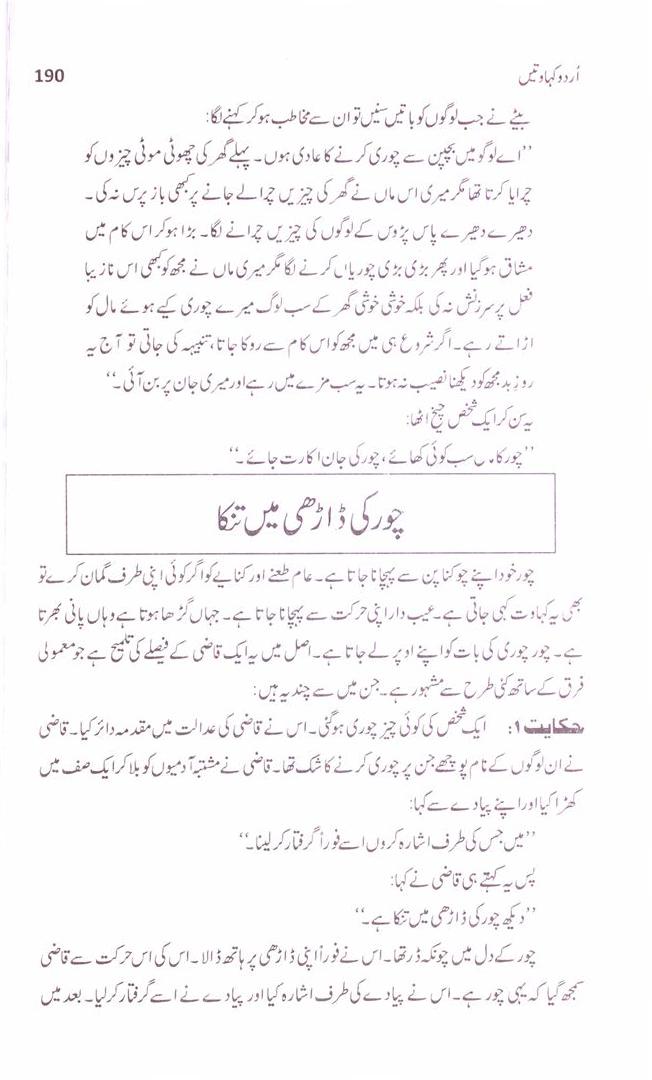 190
اُردو کہاوتیں
بیٹے نے جب لوگوں کو باتیں سنیں تو ان سے مخاطب ہو کر کہنے لگا:
’’اے لوگو میں بچپن سے چوری کرنے کا عادی ہوں۔ پہلے گھر کی چھوٹی موٹی چیزوں کو
چرایا کرتا تھا مگر میری اس ماں نے گھر کی چیزیں چرالے جانے پر کبھی باز پرس نہ کی۔
دھیرے دھیرے پاس پڑوس کے لوگوں کی چیزیں چرانے لگا۔ بڑا ہو کر اس کام میں
مشاق ہو گیا اور پھر بڑی بڑی چوریاں کرنے لگا مگر میری ماں نے مجھ کو کبھی اس نازیبا
فعل پر سرزنش نہ کی بلکہ خوشی خوشی گھر کے سب لوگ میرے چوری کیے ہوئے مال کو
اڑاتے رہے۔ اگر شروع ہی میں مجھ کو اس کام سے روکا جاتا، تنبیہہ کی جاتی تو آج یہ
روزِ بد مجھ کو دیکھنا نصیب نہ ہوتا۔ یہ سب مزے میں رہے اور میری جان پر بن آئی۔‘‘
یہ سن کر ایک شخص چیخ اٹھا:
’’چور کا مال سب کوئی کھائے، چور کی جان اکارت جائے۔‘‘
چور کی ڈاڑھی میں تنکا
چور خود اپنے چوکنا پن سے پہچانا جاتا ہے۔ عام طعنے اور کنایے کو اگر کوئی اپنی طرف گمان کرے تو
بھی یہ کہاوت کہی جاتی ہے۔ عیب دار اپنی حرکت سے پہچانا جاتا ہے۔ جہاں گڑھا ہوتا ہے وہاں پانی بھرتا
ہے۔ چور چوری کی بات کو اپنے اوپر لے جاتا ہے۔ اصل میں یہ ایک قاضی کے فیصلے کی تلمیح ہے جو معمولی
فرق کے ساتھ کئی طرح سے مشہور ہے۔ جن میں سے چند یہ ہیں:
حکایت ۱: ایک شخص کی کوئی چیز چوری ہو گئی۔ اس نے قاضی کی عدالت میں مقدمہ دائر کیا۔ قاضی
نے ان لوگوں کے نام پوچھے جن پر چوری کرنے کا شک تھا۔ قاضی نے مشتبہ آدمیوں کو بلا کر ایک صف میں
کھڑا کیا اور اپنے پیادے سے کہا:
’’میں جس کی طرف اشارہ کروں اسے فوراً گرفتار کر لینا۔‘‘
پس یہ کہتے ہی قاضی نے کہا:
’’دیکھ چور کی ڈاڑھی میں تنکا ہے۔‘‘
چور کے دل میں چونکہ ڈر تھا۔ اس نے فوراً اپنی ڈاڑھی پر ہاتھ ڈالا۔ اس کی اس حرکت سے قاضی
سمجھ گیا کہ یہی چور ہے۔ اس نے پیادے کی طرف اشارہ کیا اور پیادے نے اسے گرفتار کر لیا۔ بعد میں